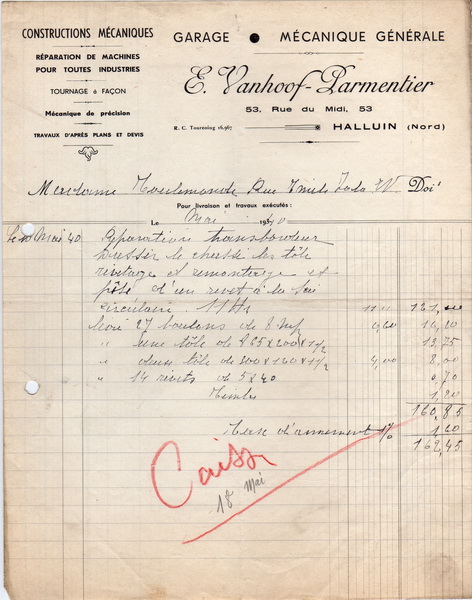 CONSTRUCTIONS MÉCANIQUES
RÉPARATION DE MACHINES
POUR TOUTES INDUSTRIES
TOURNAGE à FAÇON
Mécanique de précision
TRAVAUX D'APRÈS PLANS ET DEVIS
GARAGE • MÉCANIQUE GÉNÉRALE
E. Vanhoof-Parmentier
53, Rue du Midi, 53
R. C. Tourcoing 16.967
HALLUIN (Nord)
Madame Toulemonde Rue Emile Zola Doit
Pour livraison et travaux exécutés :
Le Mai 1940
Le 10 Mai 40 Réparation transbordeur
dresser le chassis les tôle
rivetage et remontage et
pose d'un rivet à la scie
circulaire. 11 Hs 11,00 121,00
27 boulons de 8 m/m 0,60 16,20
" une tôle de 865 x 200 x 1 1/2 12,75
" deux tôle de 300 x 160 x 1 1/2 4,00 8,00
" 14 rivets de 5 x 40 0,70
Timbre 1,20
160,85
Taxe d'armement 1% 1,60
162,45
Caisse
18 Mai